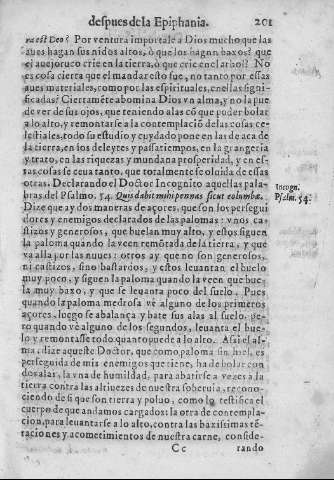 despues de la Epiphania. 201
ra est Deo? Por ventura importale a Dios mucho que las
aues hagan sus nidos altos, ò que los hagan baxos? que
el auejoruco crie en la tierra, ò que crie en el arbol? No
es cosa cierta que el mandar esto fue, no tanto por essas
aues materiales, como por las espirituales, en ellas signi-
ficadas? Ciertamẽte abomina Dios vn alma, y no la pue
de ver de sus ojos, que teniendo alas cõ que poder bolar
a lo alto, y remontarse a la contemplaciõ de las cosas ce-
lestiales, todo su estudio y cuydado pone en las de aca de
la tierra, en los deleytes y passatiempos, en la grangeria
y trato, en las riquezas y mundana prosperidad, y en es-
tas cosas se ceua tanto, que totalmente se oluida de essas
otras. Declarando el Doctor Incognito aquellas pala-
bras del Psalmo, 54. Quis dabit mihi pennas sicut columbæ.
Incogn.
Psalm. 54.
Dize que ay dos maneras de açores, que son los persegui
dores y enemigos declarados de las palomas: vnos cas-
tizos y generosos, que buelan muy alto, y estos siguen
la paloma quando la veen remõtada de la tierra, y que
va alla por las nuues: otros ay que no son generosos,
ni castizos, sino bastardos, y estos leuantan el buelo
muy poco, y siguen la paloma quando la veen que bue-
la muy baxo, y que se leuanta poco del suelo. Pues
quando la paloma medrosa vè alguno de los primeros
açores, luego se abalança y bate sus alas al suelo, pe-
ro quando vè alguno de los segundos, leuanta el bue-
lo y remontasse todo quanto puede a lo alto. Assi el al-
ma, dize aqueste Doctor, que como paloma sin hiel, es
perseguida de mis enemigos que tiene, ha de bolar con
dos alas, la vna de humildad, para abatirse a vezes a la
tierra contra las altiuezes de nuestra soberuia, reco no-
ciendo de si que son tierra y poluo, como lo testifica el
cuerpo de que andamos cargados: la otra de contempla-
cion, para leuantarse a lo alto, contra las baxissimas tẽ-
taciones y acometimientos de nuestra carne, conside-
Cc rando